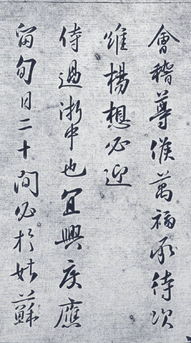 會稽尊候萬福承待次
維揚想必迎
侍過浙中也宜興度應
留旬日二十間必於姑蘇